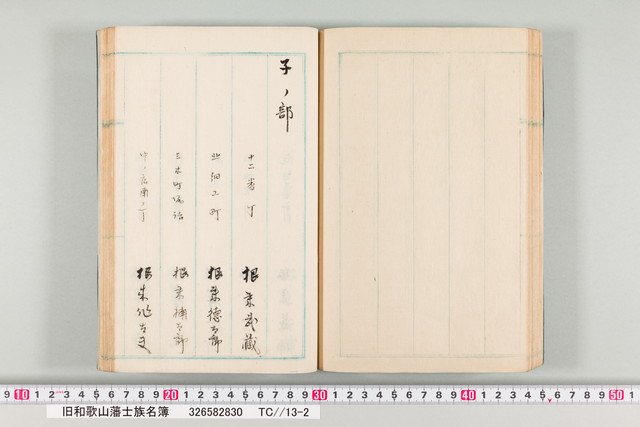 子ノ部
十二番丁
根来武蔵
北細工町
根来徳太郎
三木町堀詰
根来楠太郎
根来
9 10 1 2 3 4 5 6 7 8 9 20 1 2 3 4 5 6 7 8 9 30 1 2 3 4 5 6 7 8 9 40 1 2 3 4 5 6 7 8 9 50 1
旧和歌山藩士族名簿 326582830 TC//13-2